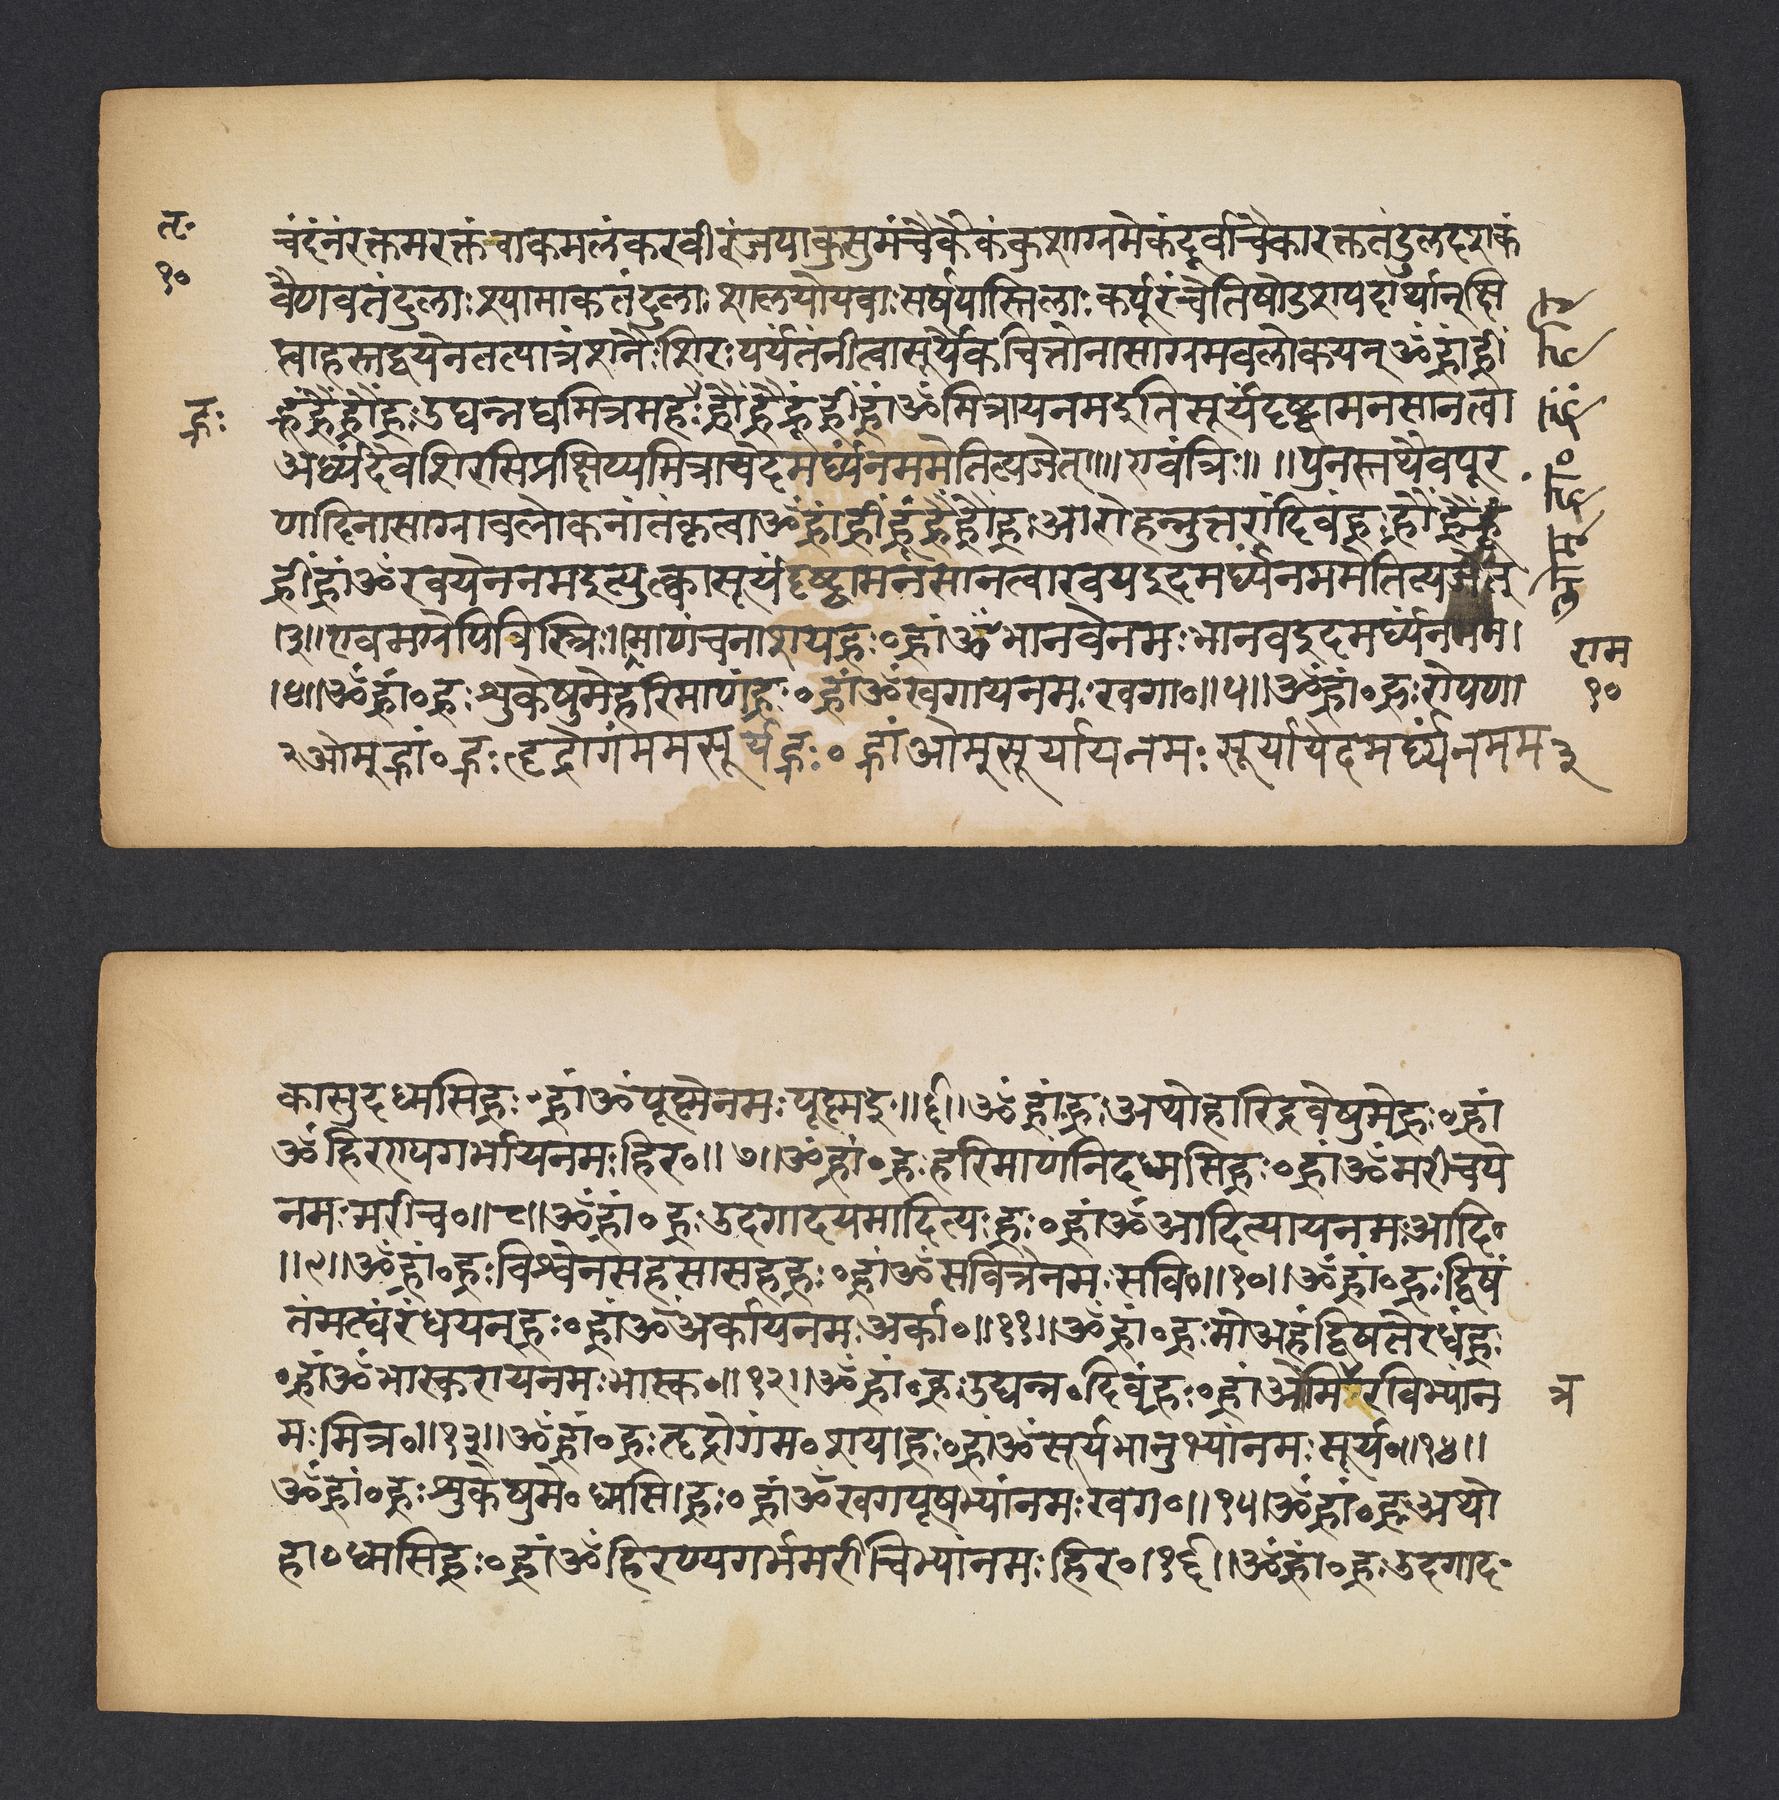 तृ॰
१०
चंदनंरक्तमरक्तंवाकमलंकरवीरंजपाकुसुमंचैकैकंकुशाग्रमेकंदूर्वाचैकारक्ततंदुलदशकं
वैणवतंदुलाःश्यामाकतंदुलाःशालयोयवाःसर्षपास्तिलाःकर्पूरंचेतिषोडशपदार्थान्क्षि
प्त्वाहस्तद्वयेनतत्पात्रंशनैःशिरःपर्यंतंनीत्वासूर्यैकचित्तोनासाग्रमवलोकयन्ॐह्रांह्रीं
ह्रूंह्रैंह्रौंह्रःउद्यन्नद्यमित्रमहःह्रःह्रौंह्रैंह्रूंह्रींह्रांॐमित्रायनमइतिसूर्यंदृष्ट्वामनसानत्वा
ह्रः
अर्घ्यंदेवशिरसिप्रक्षिप्यमित्रायेदमर्घ्यंनममेतित्यजेत्॥१॥एवंत्रिः॥ ॥पुनस्तथैवपूर
णादिनासाग्रावलोकनांतंकृत्वाॐह्रांह्रींह्रूंह्रैंह्रौंह्रःआरोहन्नुत्तरांदिवंह्रःह्रौंह्रैंह्रूं
ह्रींह्रांॐरवयेनमइत्युत्क्वासूर्यंदृष्ट्वामनसानत्वारवयइदमर्घ्यंनममेतित्यजेत्
।३॥एवमग्रेपित्रिस्त्रिः॥माणंचनाशयह्रः०ह्रांॐभानवेनमःभानवइदमर्घ्यंनमम।
।४॥ॐह्रां०ह्रःशुकेषुमेहरिमाणंह्रः०ह्रांॐखगायनमःखगा०॥५॥ॐह्रां०ह्रःरोपणा
राम
१०
२ओम्ह्रां०ह्रःहृद्रोगंममसूर्यह्रः०ह्रांओम्सूर्यायनमःसूर्यायेदमर्घ्यंनमम३
कासुदध्मसिह्रः०ह्रांॐपूष्णेनमःपूष्णइ०॥६॥ॐह्रां०ह्रःअथोहारिद्रवेषुमेह्रः०ह्रां
ॐहिरण्यगर्भायनमःहिर०॥७॥ॐह्रां०ह्रःहरिमाणंनिदध्मसिह्रः०ह्रांॐमरीचये
नमःमरीच०॥८॥ॐह्रां०ह्रःउदगादयमादित्यःह्रः०ह्रांॐआदित्यायनमःआदि०
॥९॥ॐह्रां०ह्रःविश्वेनसहसासहह्रः०ह्रांॐसवित्रेनमःसवि०॥१०॥ॐह्रां०ह्रःद्विषं
तंमह्यंरंधयन्ह्रः०ह्रांॐअर्कायनमःअर्का०॥११॥ॐह्रां०ह्रःमोअहंद्विषतेरधंह्रः
०ह्रांॐभास्करायनमःभास्क०॥१२॥ॐह्रां०ह्रःउद्यन्न०दिवंह्रः०ह्रांओंमिरविभ्यांन
त्र
मःमित्र०॥१३॥ॐह्रां०ह्रःहृद्रोगंम०शयाह्रः०ह्रांॐसूर्यभानुभ्यांनमःसूर्य०॥१४॥
ॐह्रां०ह्रःशुकेषुमे०ध्मसि।ह्रः०ह्रांॐखगपूषभ्यांनमःखग०॥१५॥ॐह्रां०ह्रःअथो
हा०ध्मसिह्रः०ह्रांॐहिरण्यगर्भमरीचिभ्यांनमःहिर०।१६॥ॐह्रां०ह्रःउदगाद०